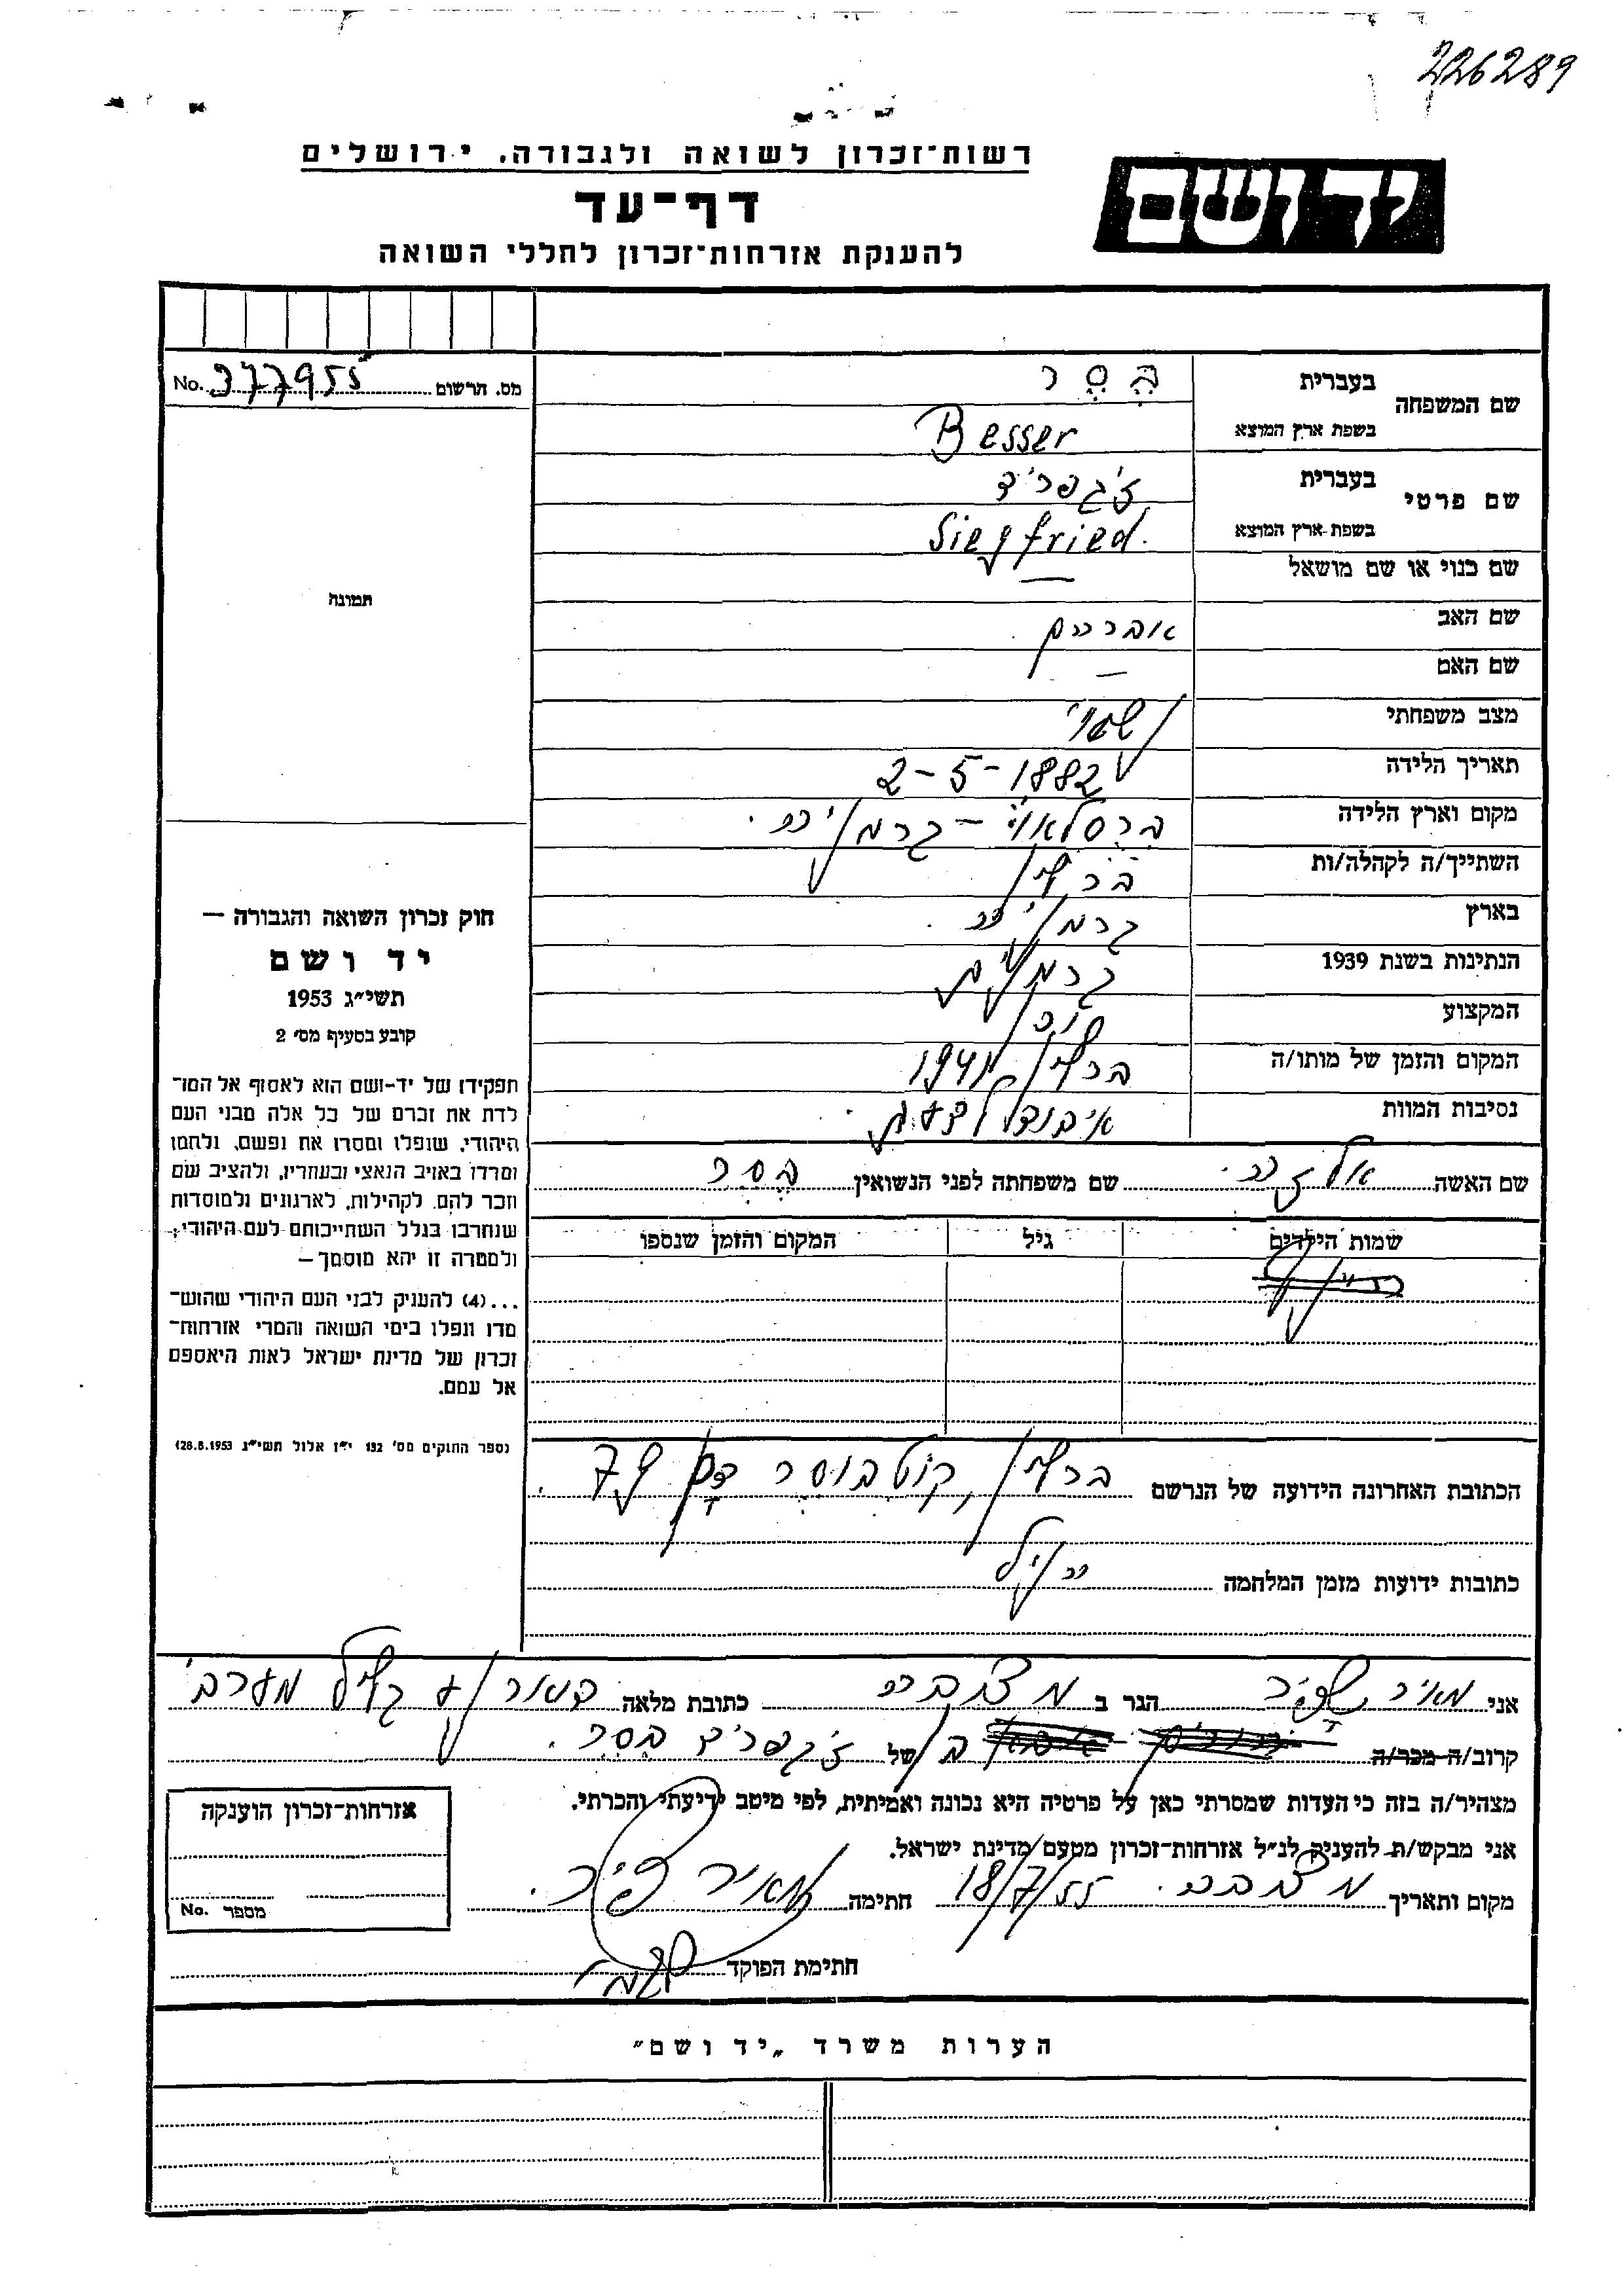 226289
רשות־זכרון לשואה ולגבורה, ירושלים
יד ושם
דף־עד
להענקת אזרחות־זכרון לחללי השואה
מס. הרשום No. 377955
שם המשפחה
בעברית בֶּסֶר
בשפת ארץ המוצא Besser
שם פרטי
בעברית זיגפריד
בשפת ארץ המוצא Siegfried.
שם כנוי או שם מושאל —
שם האב אברהם.
שם האם —
מצב משפחתי נשוי
תאריך הלידה 2-5-1882
מקום וארץ הלידה ברסלאו - גרמניה.
השתייך/ה לקהלה/ות ברלין
בארץ גרמניה.
הנתינות בשנת 1939 גרמנית
המקצוע סוכן
המקום והזמן של מותו/ה ברלין 1941
נסיבות המוות
שם האשה אלזה. שם משפחתה לפני הנשואין בֶּסֶר
שמות הילדים גיל המקום והזמן שנספו
הכתובת האחרונה הידועה של הנרשם ברלין, קוטבוסר דם 79.
כתובות ידועות מזמן המלחמה כנ"ל
תמונה
חוק זכרון השואה והגבורה —
יד ושם
תשי״ג 1953
קובע בסעיף מס׳ 2
תפקידו של יד-ושם הוא לאסוף אל המו־
לדת את זכרם של כל אלה מבני העם
היהודי, שנפלו ומסרו את נפשם, נלחמו
ומרדו באויב הנאצי ובעוזריו, ולהציב שם
וזכר להם, לקהילות, לארגונים ולמוסדות
שנחרבו בגלל השתייכותם לעם היהודי;
ולמטרה זו יהא מוסמך—
...(4) להעניק לבני העם היהודי שהוש־
מדו ונפלו בימי השואה והמרי אזרחות־
זכרון של מדינת ישראל לאות היאספם
אל עמם.
(ספר החוקים מס׳ 132 י״ז אלול תשי״ג 28.8.1953)
אני מאיר הגר ב מצובה כתובת מלאה דאר נע גליל מערבי
קרוב/ה מכר/ה בן של זיגפריד בֶּסֶר.
מצהיר/ה בזה כי העדות שמסרתי כאן על פרטיה היא נכונה ואמיתית, לפי מיטב ידיעתי והכרתי.
אני מבקש/ת להעניק לנ״ל אזרחות־זכרון מטעם מדינת ישראל.
מקום ותאריך מצובה. 18/7/55 חתימה מאיר
חתימת הפוקד
אזרחות־זכרון הוענקה
מספר No.
הערות משרד „יד ושם״